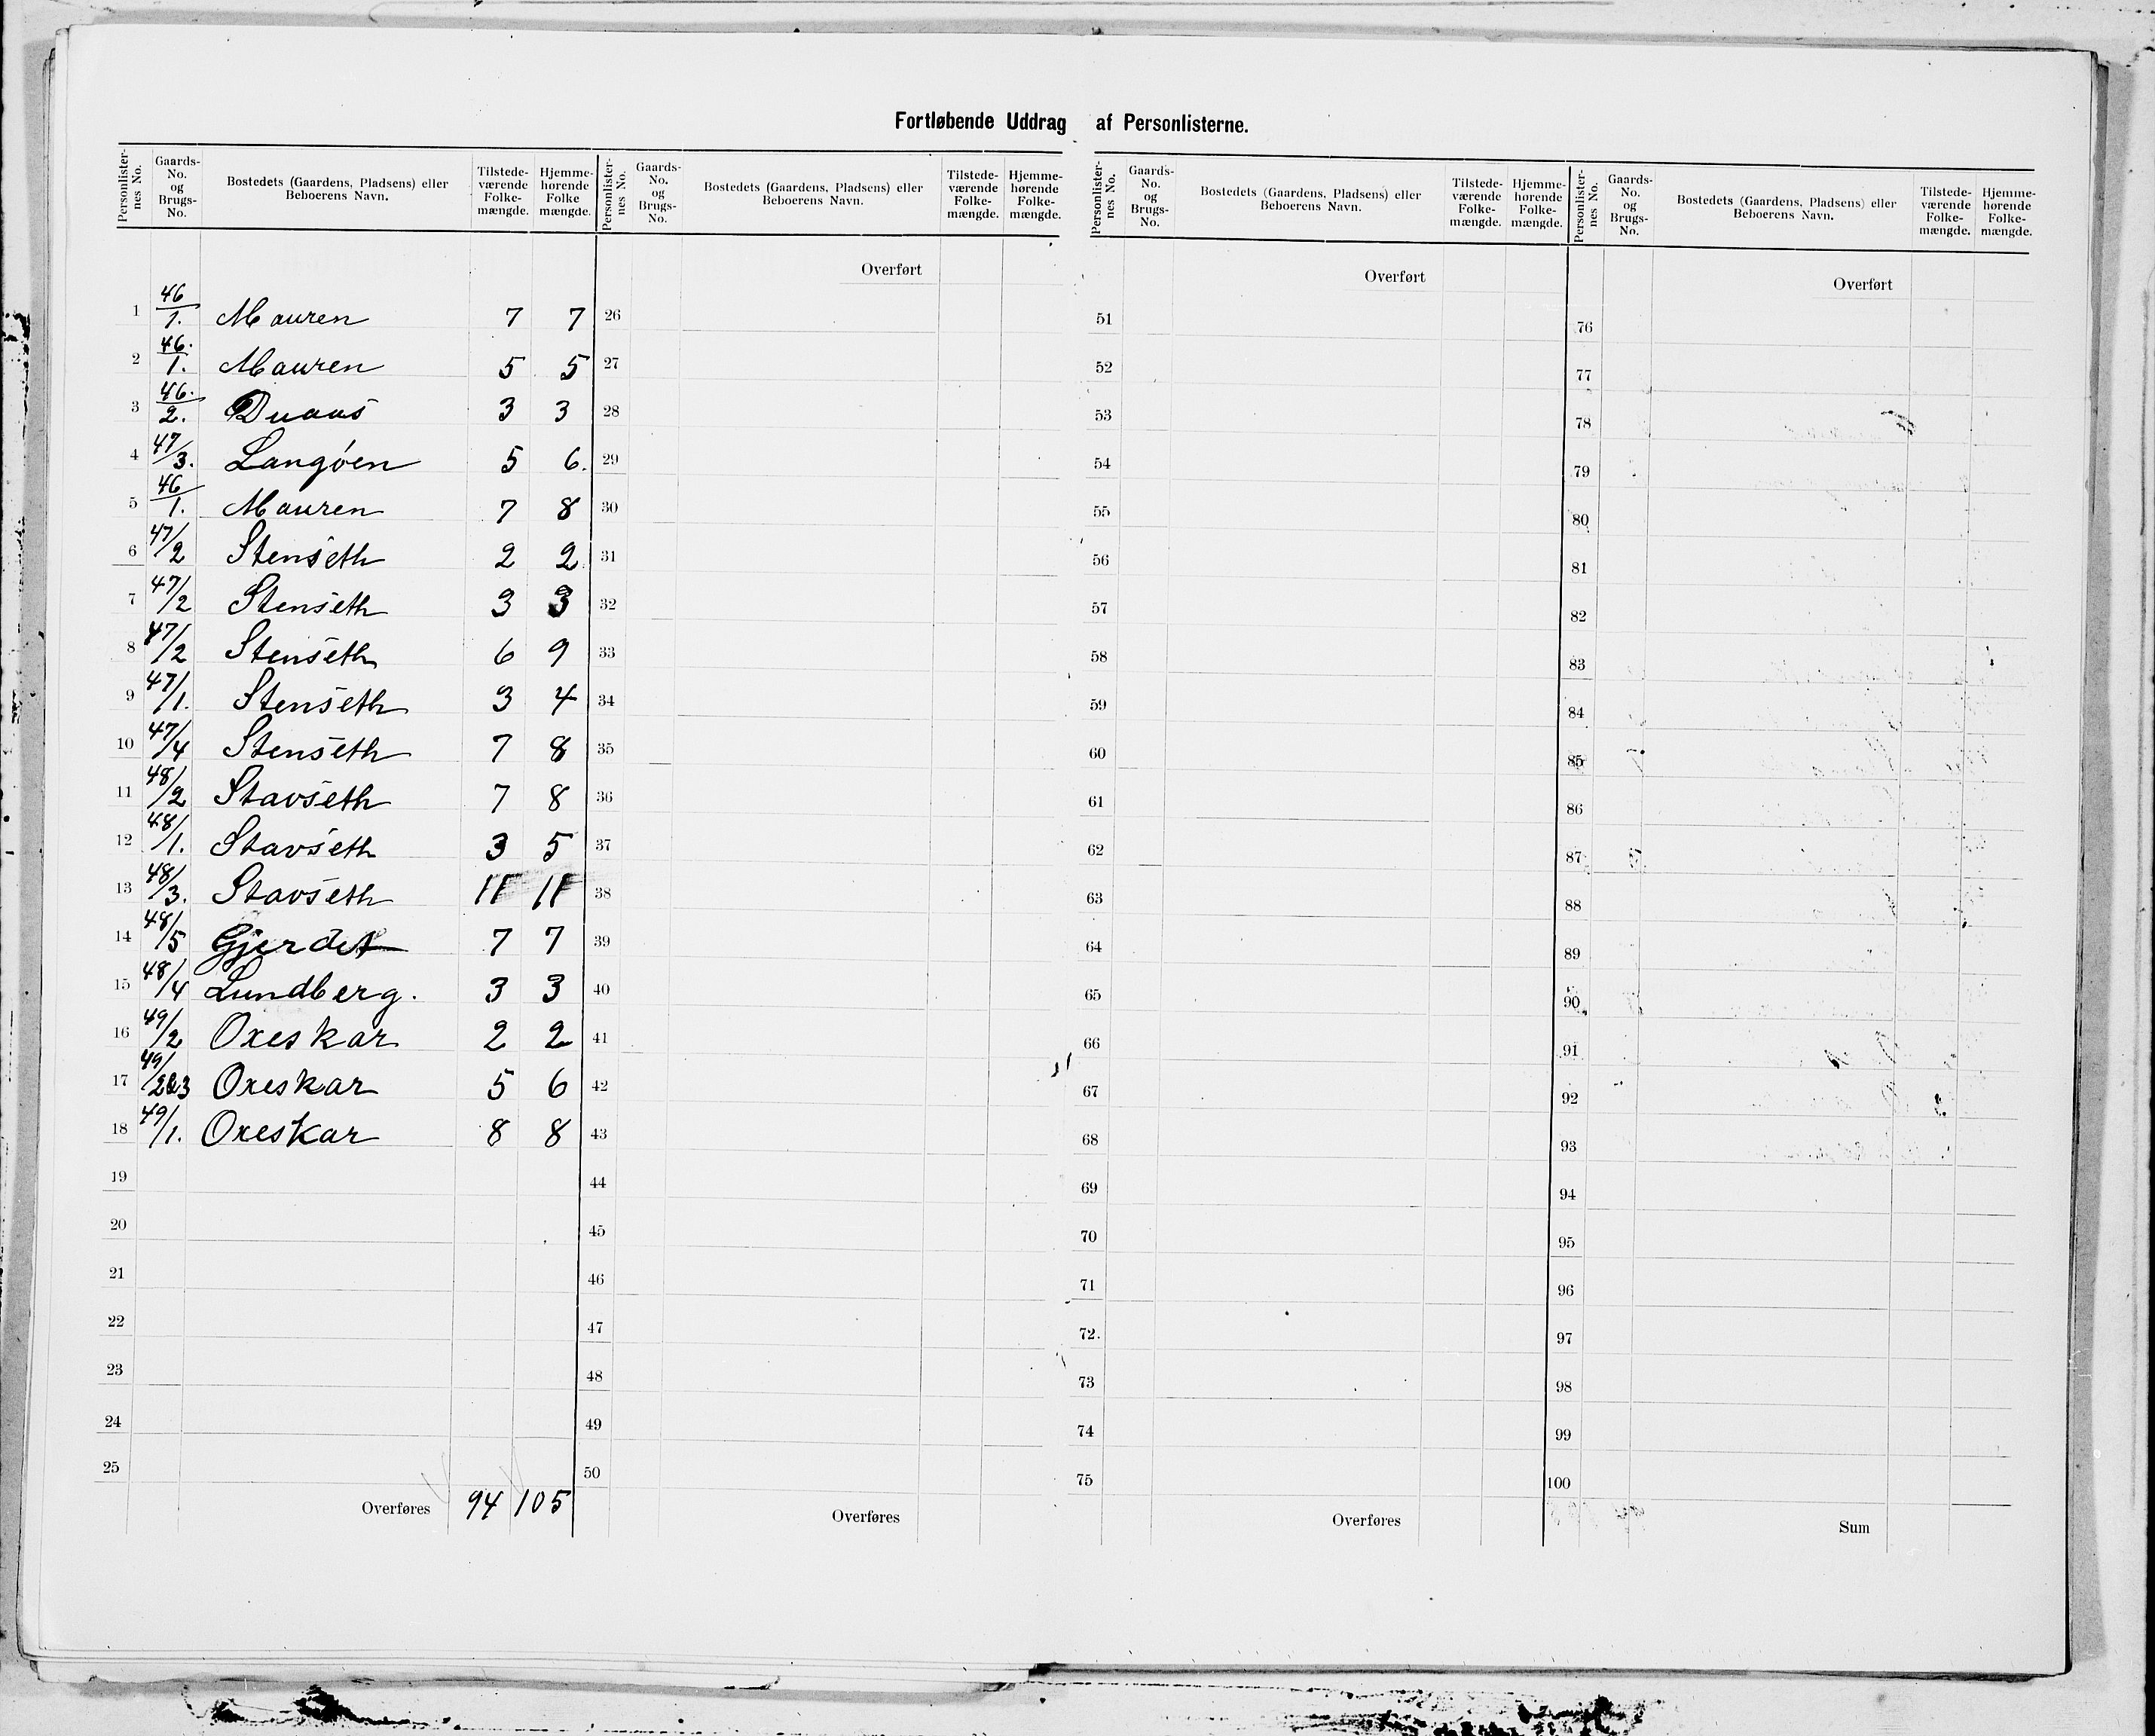 Fortløbende Uddrag af Personlisterne.
Personlisternes No. Gaards-No. og Brugs-No. Bostedets (Gaardens, Pladsens) eller Beboerens Navn. Tilstedeværende Folkemængde. Hjemmehørende Folkemængde.
1 46/1. Mauren 7 7
2 46./1. Mauren 5 5
3 46./2. 3 3
4 47/3. Langøen 5 6.
5 46/1. Mauren 7 8
6 47/2 Stenseth 2 2
7 47/2 Stenseth 3 3
8 47/2 Stenseth 6 9
9 47/1. Stenseth 3 4
10 47/4 Stenseth 7 8
11 48/2 Stavseth 7 8
12 48/1. Stavseth 3 5
13 48/3. Stavseth 11 11
14 48/5 Gjerdet 7 7
15 48/4 Lundberg. 3 3
16 49/2 Oxeskar 2 2
17 49/2&3 Oxeskar 5 6
18 49/1. Oxeskar 8 8
19
20
21
22
23
24
25
Overføres 94 105
Personlisternes No. Gaards-No. og Brugs-No. Bostedets (Gaardens, Pladsens) eller Beboerens Navn. Tilstedeværende Folkemængde. Hjemmehørende Folkemængde.
Overført
26
27
28
29
30
31
32
33
34
35
36
37
38
39
40
41
42
43
44
45
46
47
48
49
50
Overføres
Personlisternes No. Gaards-No. og Brugs-No. Bostedets (Gaardens, Pladsens) eller Beboerens Navn. Tilstedeværende Folkemængde. Hjemmehørende Folkemængde.
Overført
51
52
53
54
55
56
57
58
59
60
61
62
63
64
65
66
67
68
69
70
71
72.
73
74
75
Overføres
Personlisternes No. Gaards-No. og Brugs-No. Bostedets (Gaardens, Pladsens) eller Beboerens Navn. Tilstedeværende Folkemængde. Hjemmehørende Folkemængde.
Overført
76
77
78
79
80
81
82
83
84
85
86
87
88
89
90
91
92
93
94
95
96
97
98
99
100
Sum